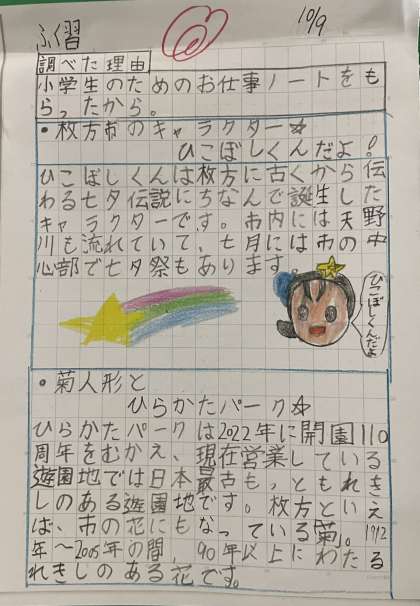 10/9
ふく習
調べた理由
小学生のためのお仕事ノートをも
らったから。
・枚方市のキャラクター☆
ひこぼしくんだよ!
ひこぼしくんは枚方に古くから伝
わる七夕伝説にちなんで誕生した
キャラクターです。市内には天野
川も流れていて、七月には市の中
心部で七夕祭もあります
ひこぼしくんだよ
・菊人形と
ひらかたパーク☆
ひらかたパークは2022年に開園110
周年をむかえ、現在営業している
遊園地では日本最古も、ともれき
しのある遊園地です。枚方といえ
ば、市の花にもなっている菊。1912
年〜2005年の間、90年以上にわたる
れきしのある花です。